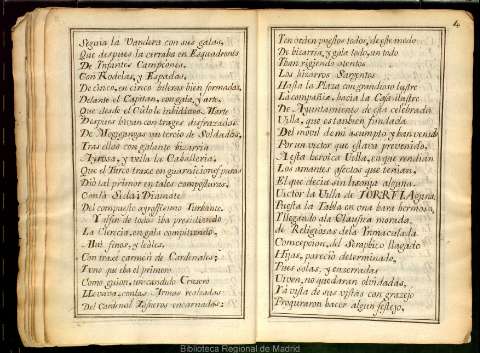 Seguia la Vandera con sus galas,
Que despues la cerraba en Esquadrones
De Infantes Campeones,
Con Rodelas, y Espadas,
De cinco, en cinco hileras bien formadas,
Delante el Capitan, con gala, y arte,
Que desde el Cielo le imbidiava Marte
Despues iban con trages disfrazados
De Mogigangas un tercio de Soldados,
Tras ellos con galante bizarria
Ayrosa, y bella la Caballeria,
Que el Turco traxe en guarniciones puras
Dio tal primor en tales composturas,
Con la Seda, i Diamante
Del compuesto ayrosissimo Turbante.
Y a fin de todos iba presidiendo
La Clerecia, en gala compitiendo,
Con traxe carmesi de Cardenales;
Y uno que iba el primero
Como guion, un candido Crucero
Llevava, con las Armas realzadas
Del Cardenal Zisneros encarnadas:
4
Ten orden puestos todos, de este modo
De bizarria, y gala todo, un todo
Iban rigiendo atentos
Los bizarros Sargentos
Hasta la Plaza con grandioso lustre
La compañia, hacia la Casa ilustre
De Ayuntamiento de esta celebrada
Villa, que es tambien fundada
Del movil de mi asumpto y han venido
Por un victor que estava prevenido,
A esta heroica Villa, en que rendian
Los amantes afectos que tenian,
El que decia sin lisonja alguna
Victor la Villa de TORRELAguna,
Puesta la Tabla en una bara hermosa,
Y llegando a la Clausura morada,
de Religiosas de la Inmaculada
Concepcion, del Seraphico llagado
Hijas, parecio determinado,
Pues solas, y encerradas
Viven, no quedaran olvidadas,
Y a vista de sus vistas con gracejo
Procuraron hacer algun festejo,
Biblioteca Regional de Madrid